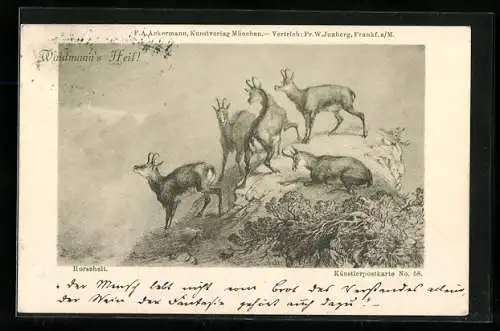 F.A.Ackermann, Kunstverlag München.— Vertrieb: Fr.W.Junberg, Frankf.a/M.
Windmann's Heil!
Horschelt.
Künstlerpostkarte No. 58.
„der Mensch lebt nicht vom Brot des Verstandes allein
der Wein der Fantasie gehört auch dazu“!